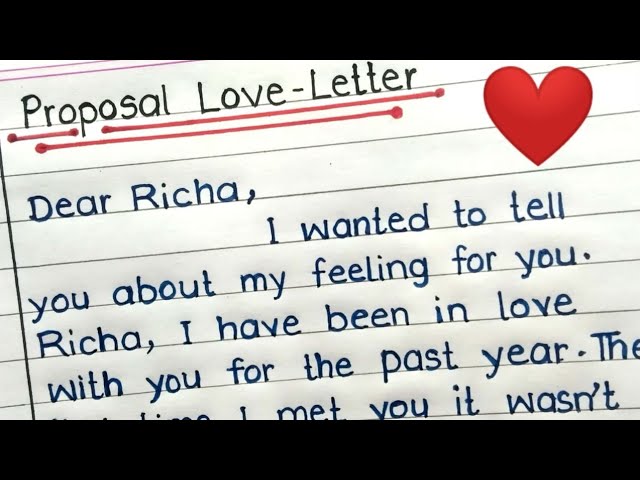 Proposal Love-Letter
Dear Richa,
I wanted to tell
you about my feeling for you.
Richa, I have been in love
with you for the past year. The
time I met you it wasn't